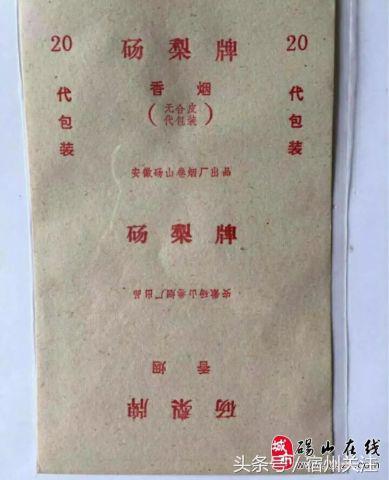 20 砀梨牌 20
香烟
(无合皮
代包装)
代包装
代包装
安徽砀山卷烟厂出品
砀梨牌
安徽砀山卷烟厂出品
香烟
砀梨牌
城市 砀山在线
头条号／宿州关注